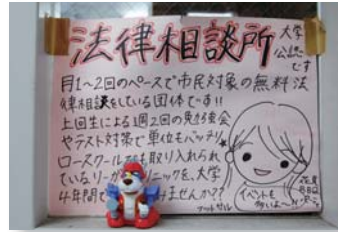 法律相談所
大学
公認
です
月1~2回のペースで市民対象の無料法
律相談をしている団体です!!
上回生による週2回の勉強会
やテスト対策で単位もバッチリ
ロースクールでも取り入れられ
ているリーガル ニックを、大学
4年間で みませんか??
イベントも
多いよ~
花見
BBQ
フットサル